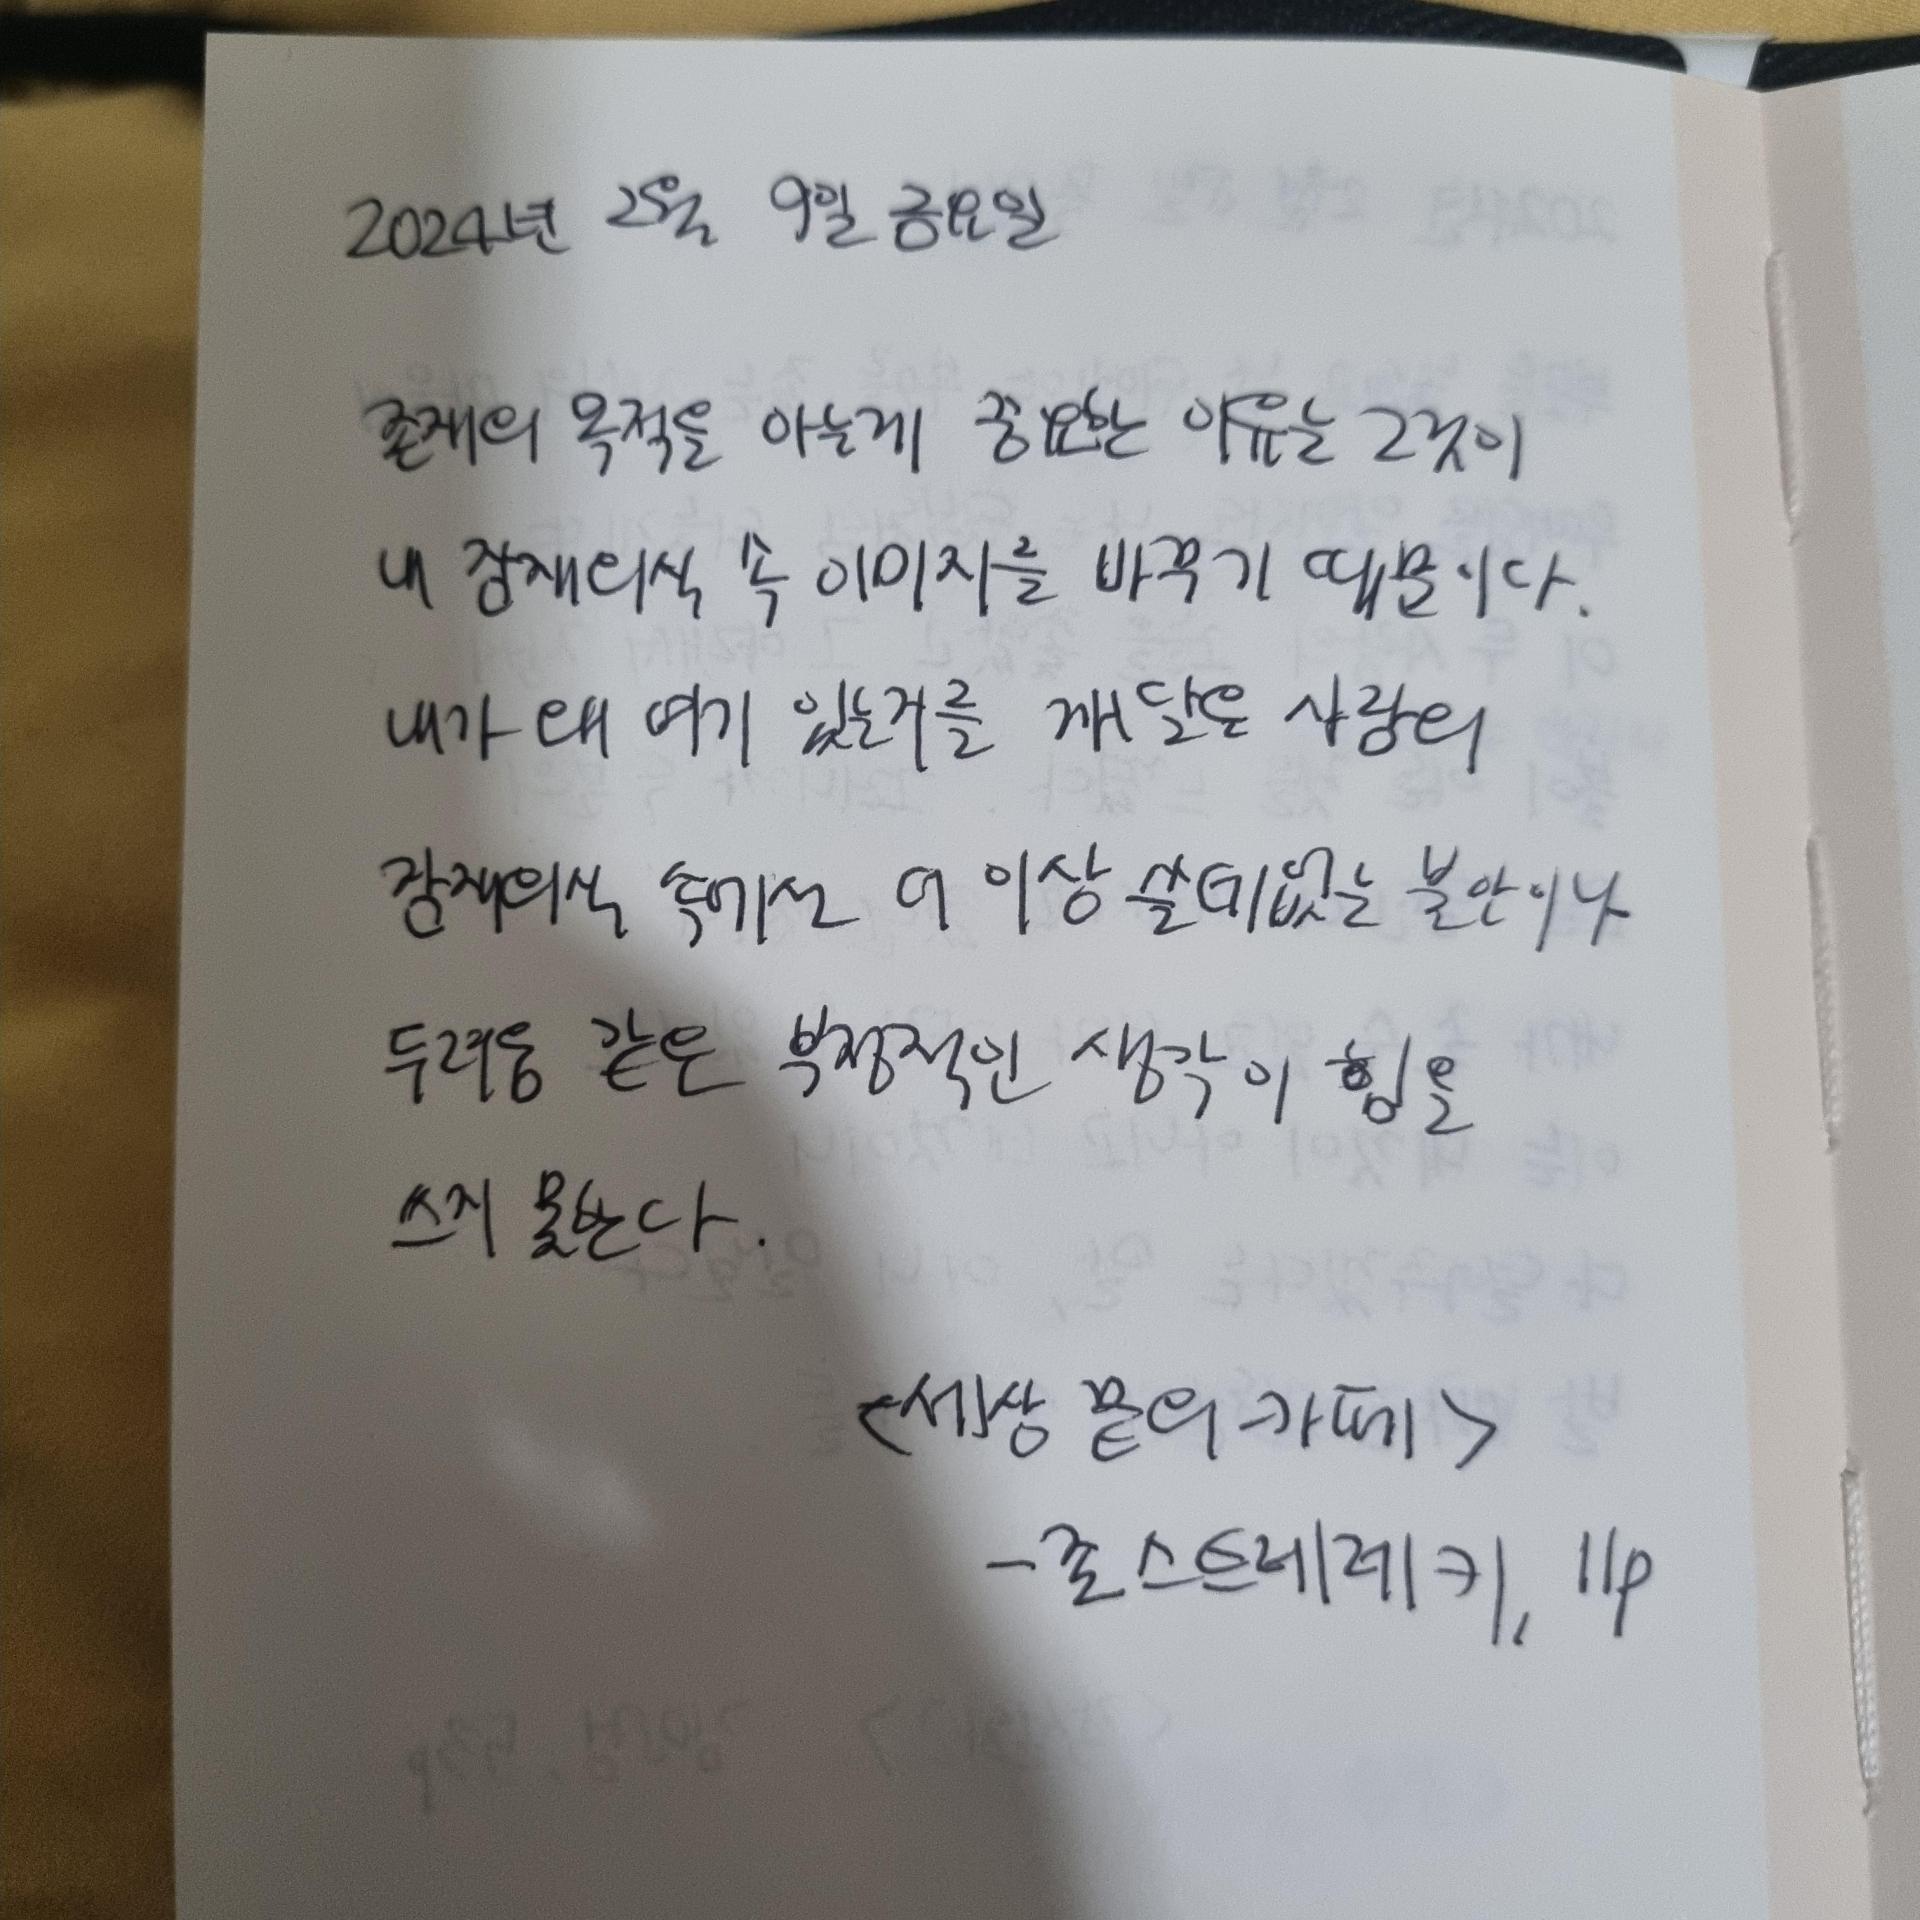 2024년 2월 9일 금요일
존재의 목적을 아는게 중요한 이유는 그것이
내 잠재의식 속 이미지를 바꾸기 때문이다.
내가 왜 여기 있는거를 깨달은 사람의
잠재의식 속에서 더 이상 쓸데없는 불안이나
두려움 같은 부정적인 생각이 힘을
쓰지 못한다.
<세상 끝의 카페>
- 존 스트레레키, 11p